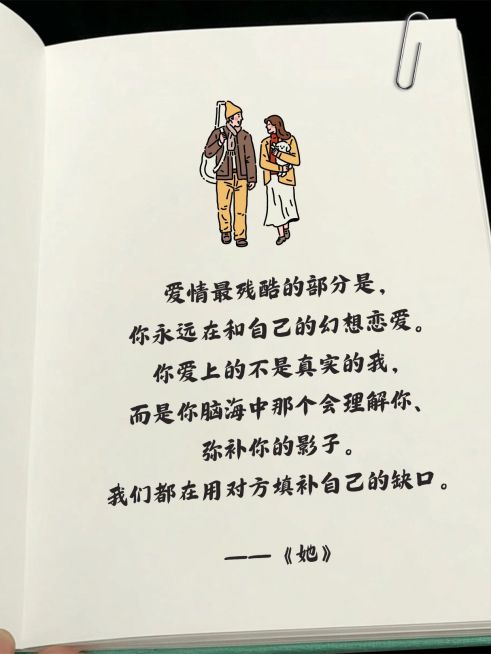 爱情最残酷的部分是，
你永远在和自己的幻想恋爱。
你爱上的不是真实的我，
而是你脑海中那个会理解你、
弥补你的影子。
我们都在用对方填补自己的缺口。
——《她》